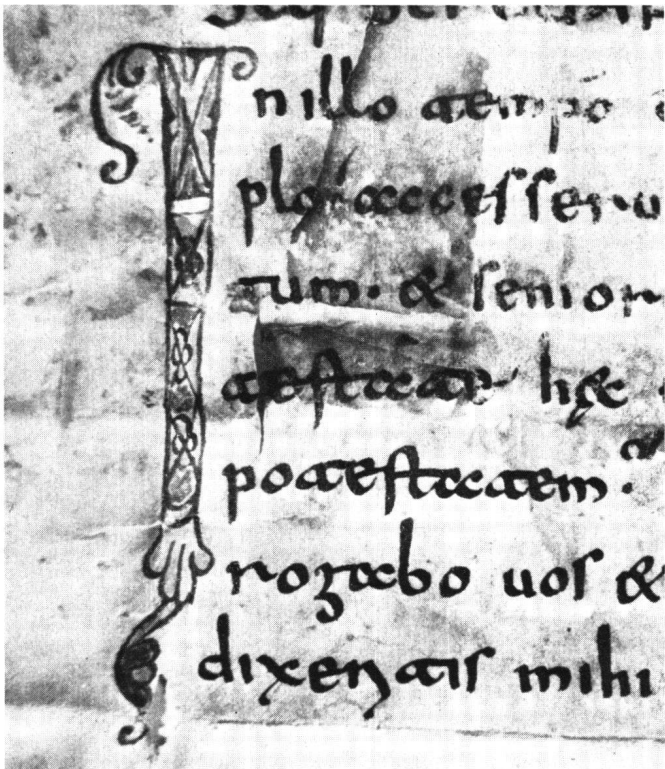 In illo tempō
plo· accesseru
tum· & senior
testate hęc
potestatem·
rogabo uos &
dixeritis mihi